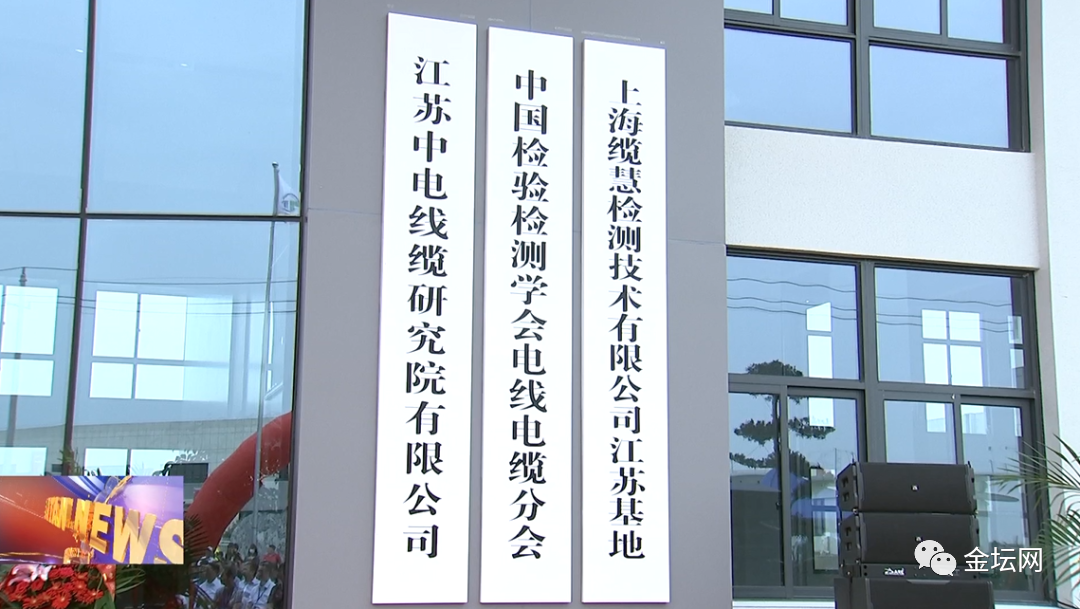 江苏中电线缆研究院有限公司
中国检验检测学会电线电缆分会
上海缆慧检测技术有限公司江苏基地
NEWS
金坛网